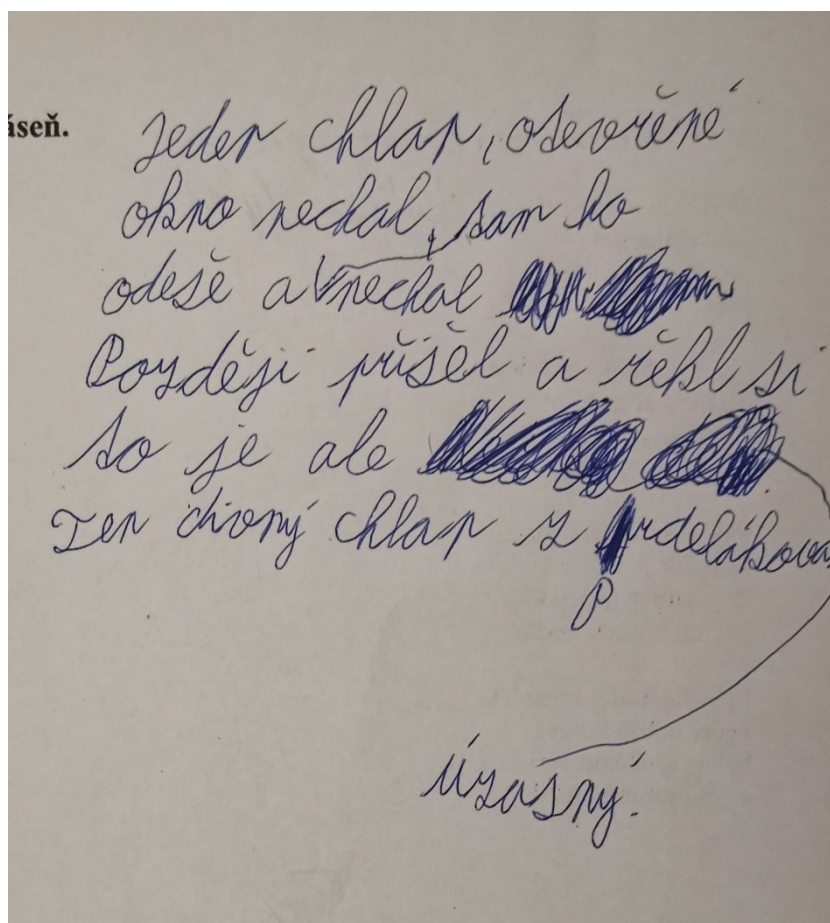 áseň.
Jeden chlap, otevřené
okno nechal, tam ho
odešě a nechal
Později přišel a řěkl si
to je ale
Ten divný chlap z rdelákova
P
Úžasný.